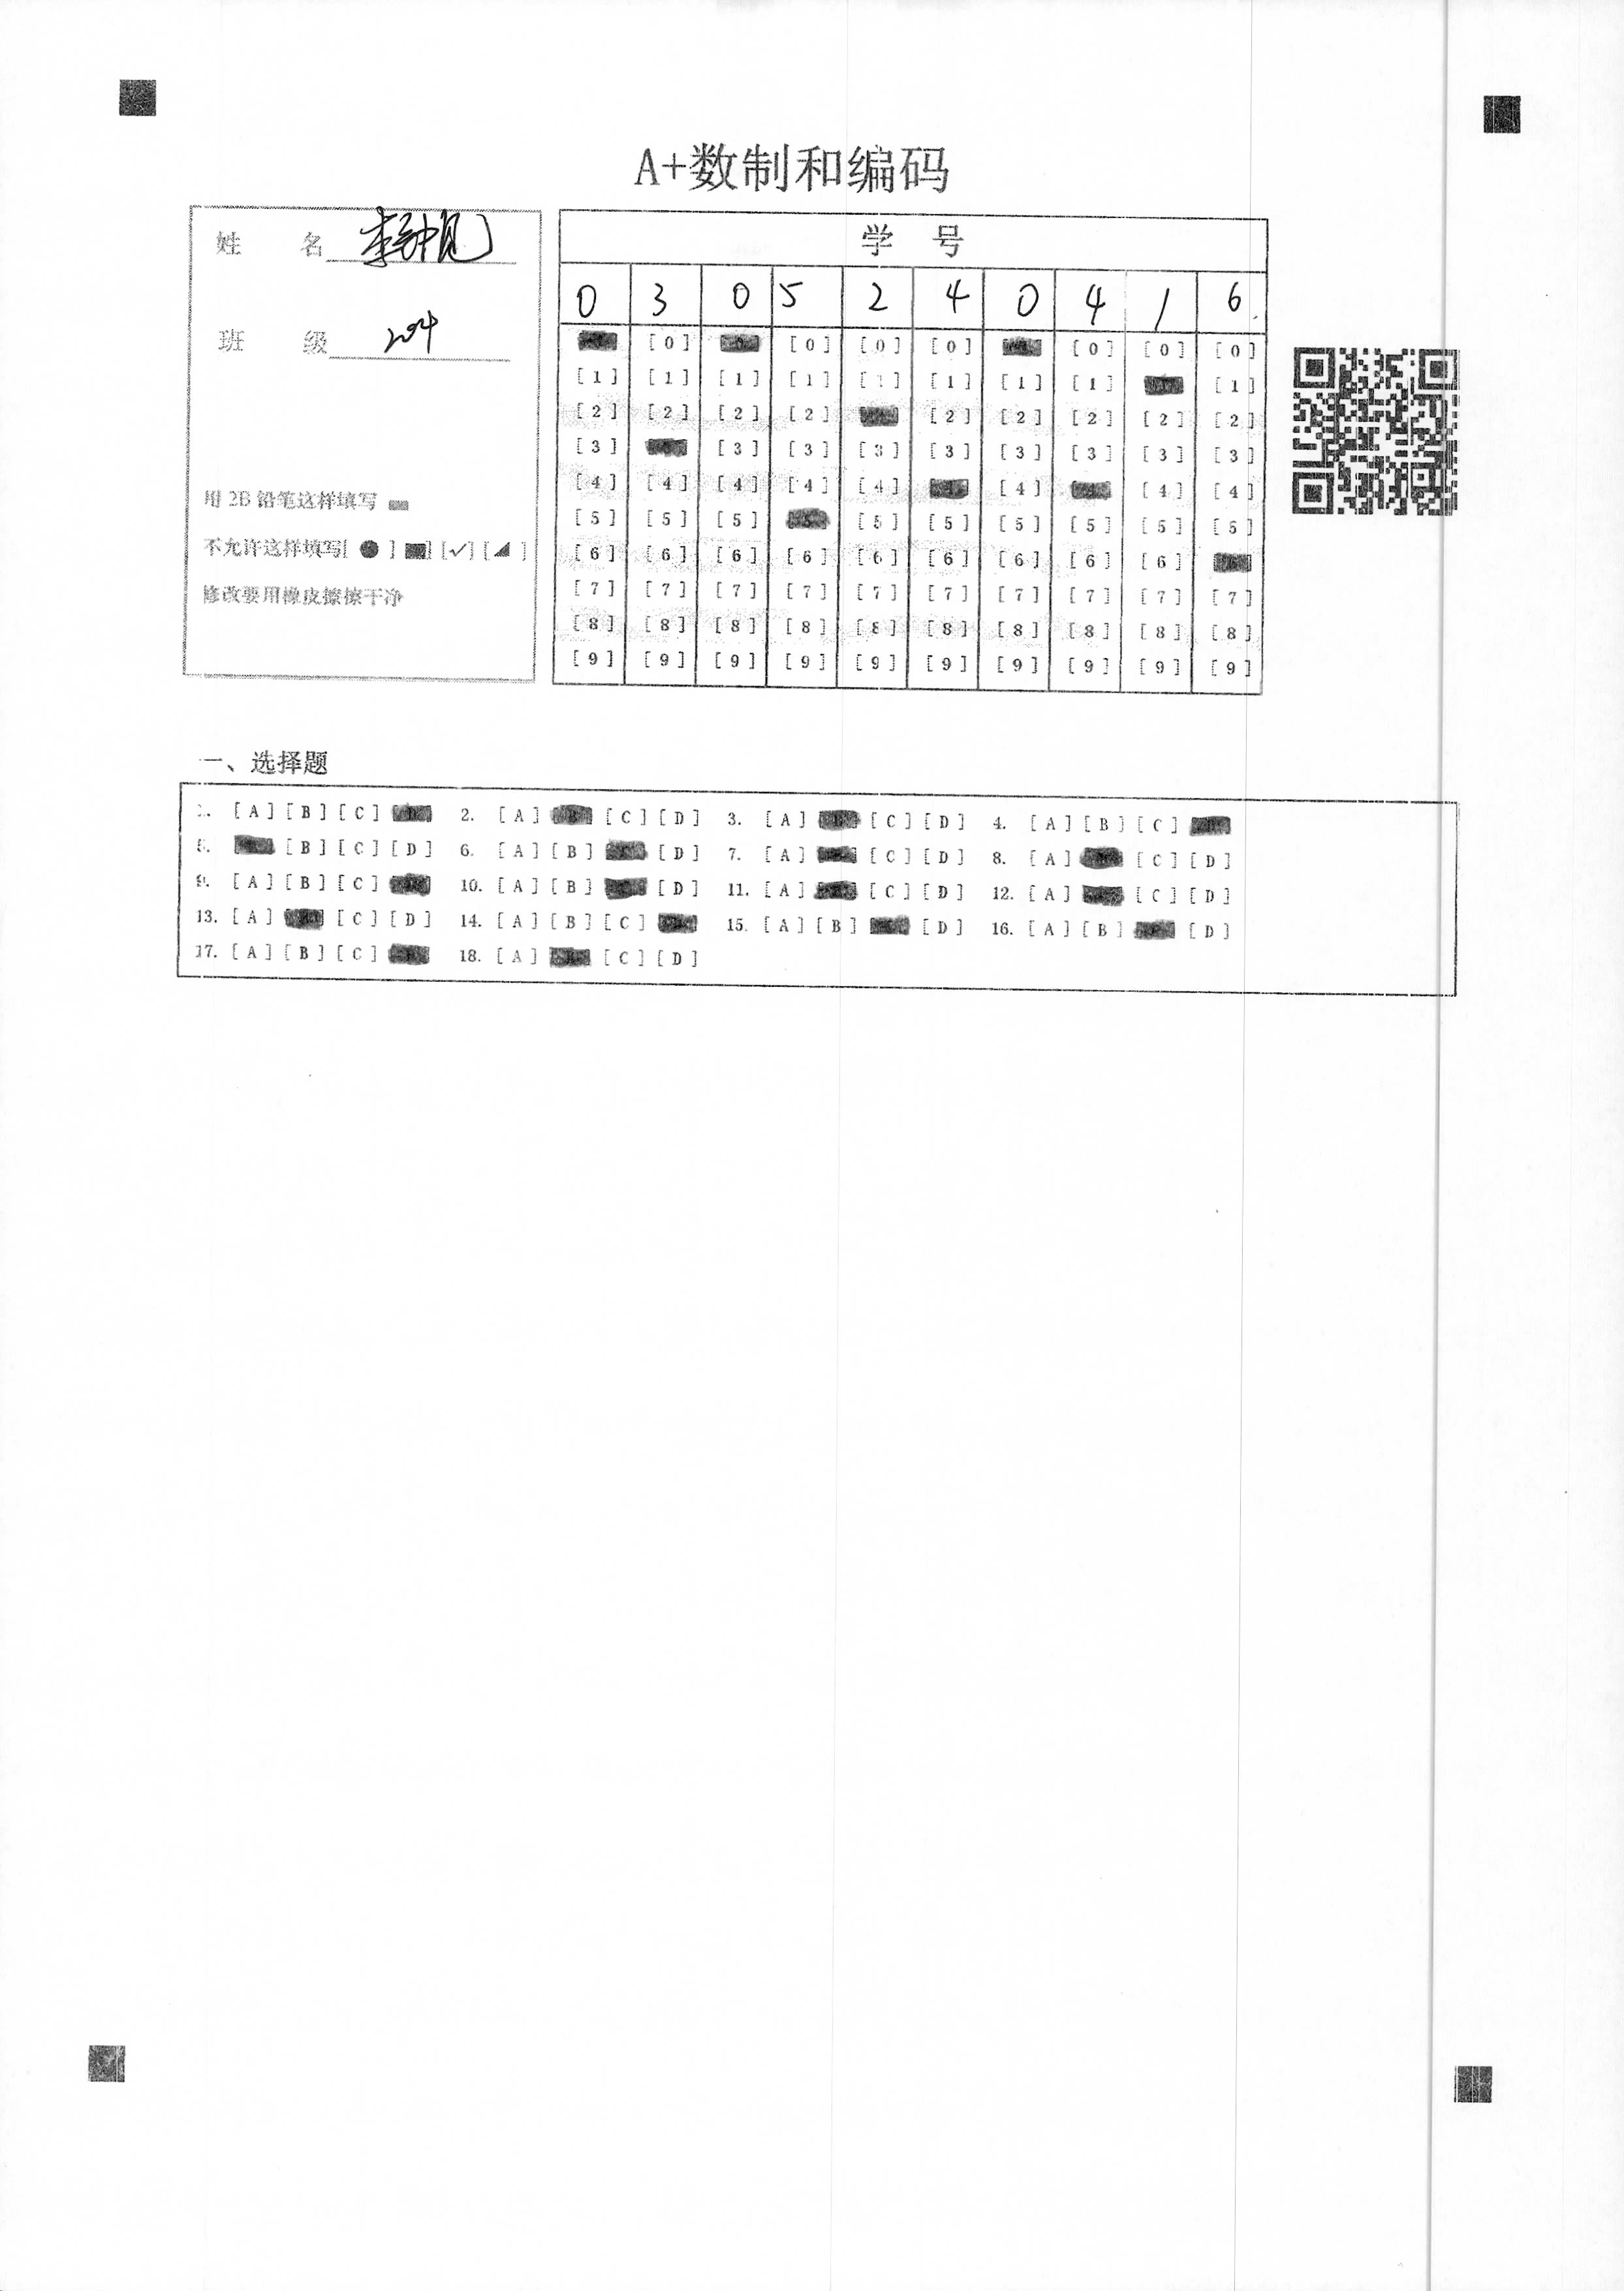 A+数制和编码
姓 名
班 级 204
用 2B 铅笔这样填写
不允许这样填写[ ● ] [✓] [ ]
修改要用橡皮擦擦干净
学 号
0 3 0 5 2 4 0 4 1 6
[0] [0] [0] [0] [0] [0] [0]
[1] [1] [1] [1] [1] [1] [1] [1] [1]
[2] [2] [2] [2] [2] [2] [2] [2] [2]
[3] [3] [3] [3] [3] [3] [3] [3] [3]
[4] [4] [4] [4] [4] [4] [4] [4]
[5] [5] [5] [5] [5] [5] [5] [5] [5]
[6] [6] [6] [6] [6] [6] [6] [6] [6]
[7] [7] [7] [7] [7] [7] [7] [7] [7] [7]
[8] [8] [8] [8] [8] [8] [8] [8] [8] [8]
[9] [9] [9] [9] [9] [9] [9] [9] [9] [9]
一、选择题
1. [A] [B] [C] 2. [A] [C] [D] 3. [A] [C] [D] 4. [A] [B] [C]
5. [B] [C] [D] 6. [A] [B] [D] 7. [A] [C] [D] 8. [A] [C] [D]
9. [A] [B] [C] 10. [A] [B] [D] 11. [A] [C] [D] 12. [A] [C] [D]
13. [A] [C] [D] 14. [A] [B] [C] 15. [A] [B] [D] 16. [A] [B] [D]
17. [A] [B] [C] 18. [A] [C] [D]